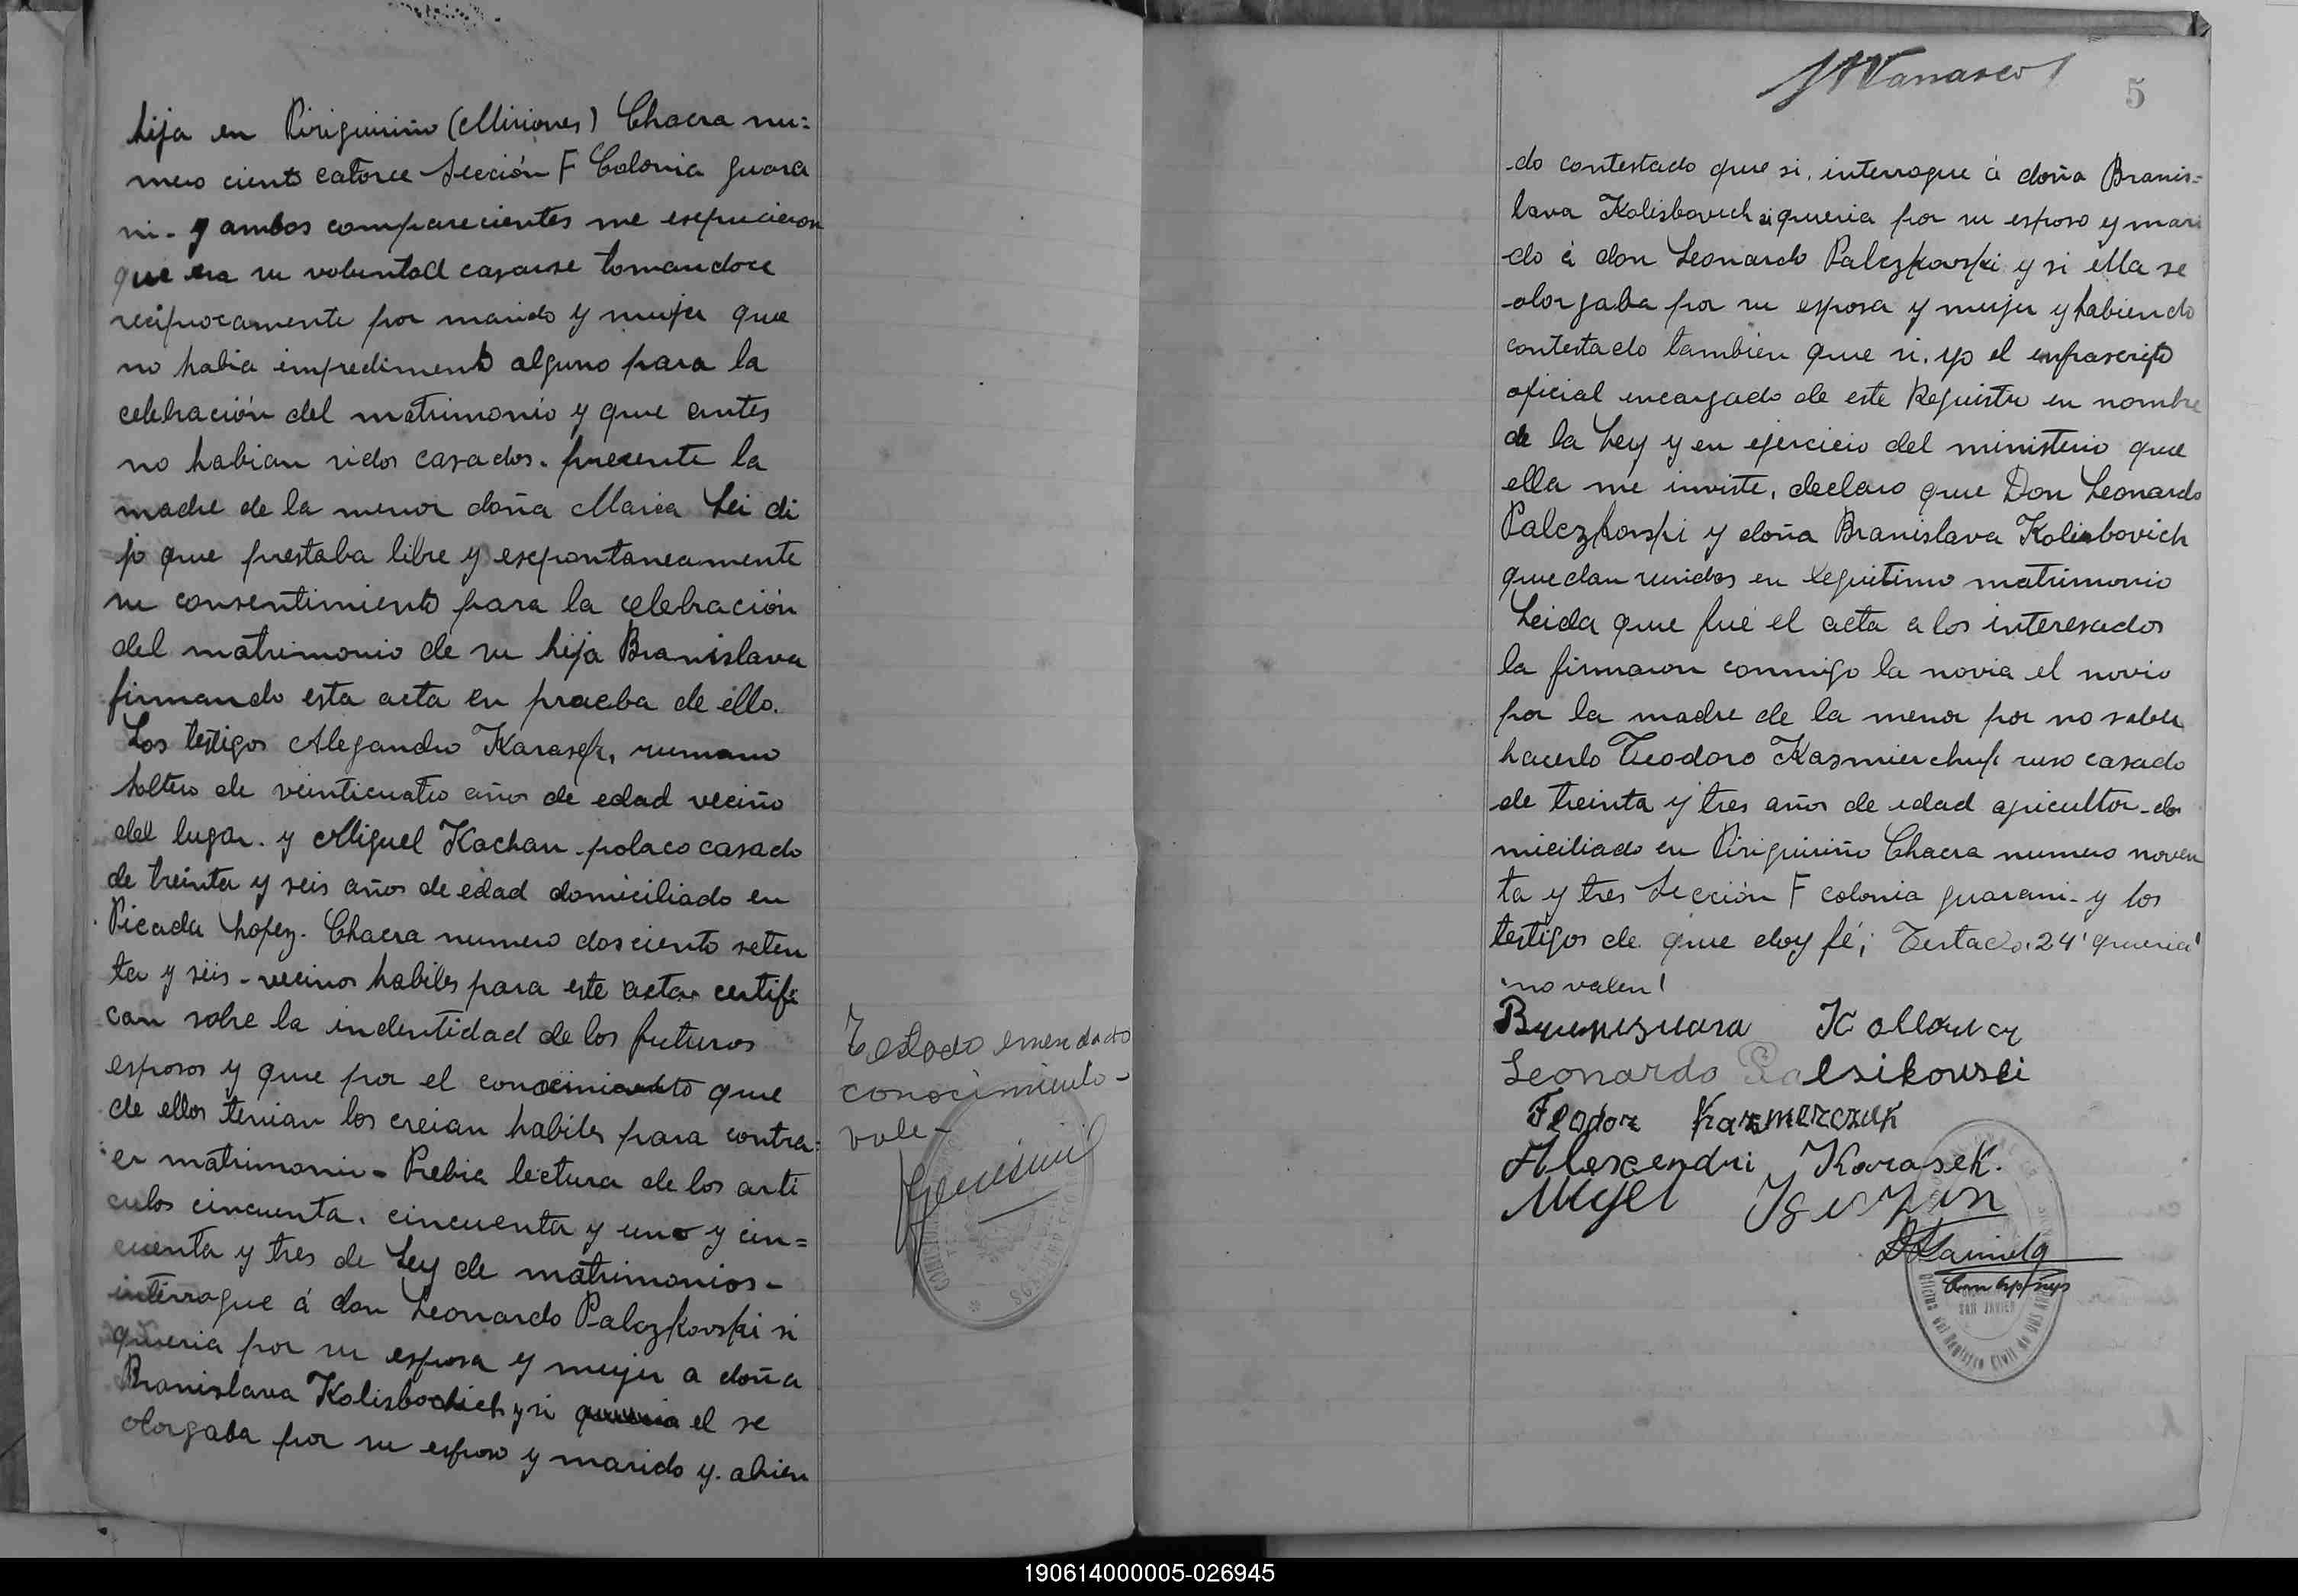 hija en Piriguiriño (Misiones) Chacra nu=
mero ciento catorce Sección F Colonia guara
ni. y ambos comparecientes me espucieron
que era su voluntad casarse tomandoce
reciprocamente por marido y mujer que
no habia impedimento alguno para la
celebración del matrimonio y que antes
no habian sidos casados. presente la
madre de la menor doña Maria Lei di
jo que prestaba libre y esepontaneamente
su consentimiento para la celebración
del matrimonio de su hija Branislava
firmando esta acta en prueba de ello.
Los testigos Alejandro Karasek, rumano
soltero de veinticuatro años de edad veciño
del lugar. y Miguel Kachan polaco casado
de treinta y seis años de edad domiciliado en
Picada Lopez. Chacra numero dosciento seten
ta y seis - vecinos habiles para este acta certifi
can sobre la indentidad de los futuros
esposos y que por el conocimiento que
de ellos tenian los creian habiles para contra=
er matrimonio - Prebia lectura de los arti
culos cincuenta, cincuenta y uno y cin=
cuenta y tres de Ley de matrimonios -
interrogue á don Leonardo Palczkovski si
queria por su esposa y mujer a doña
Branislava Kolisbovich y si queria el se
otorgaba por su esposo y marido y abien
Testado emendado
conocimiento -
vale -
5
do contestado que si, interrogue á doña Branis=
lava Kolisbovich si queria por su esposo y mari
do á don Leonardo Palczkovski y si ella se
otorgaba por su esposa y mujer y habiendo
contestado tambien que si. yo el infrascripto
oficial encargado de este Registro en nombre
de la Ley y en ejercicio del ministerio que
ella me inviste, declaro que Don Leonardo
Palczkovski y doña Branislava Kolisbovich
quedan unidos en leguitimo matrimonio
Leida que fué el acta a los interesados
la firmaron conmigo la novia el novio
por la madre de la menor por no saber
hacerlo Teodoro Kasmierchuk ruso casado
de treinta y tres años de edad agricultor do
miciliado en Piriguiriño Chacra numero noven
ta y tres Sección F colonia guarani - y los
testigos de que doy fé; Testado. 24 'queria'
'no valen'
Leonardo Palsikouski
Feodor Kazmerczuk
Alexendri Karasek.
Migel
SAN JAVIER
190614000005-026945